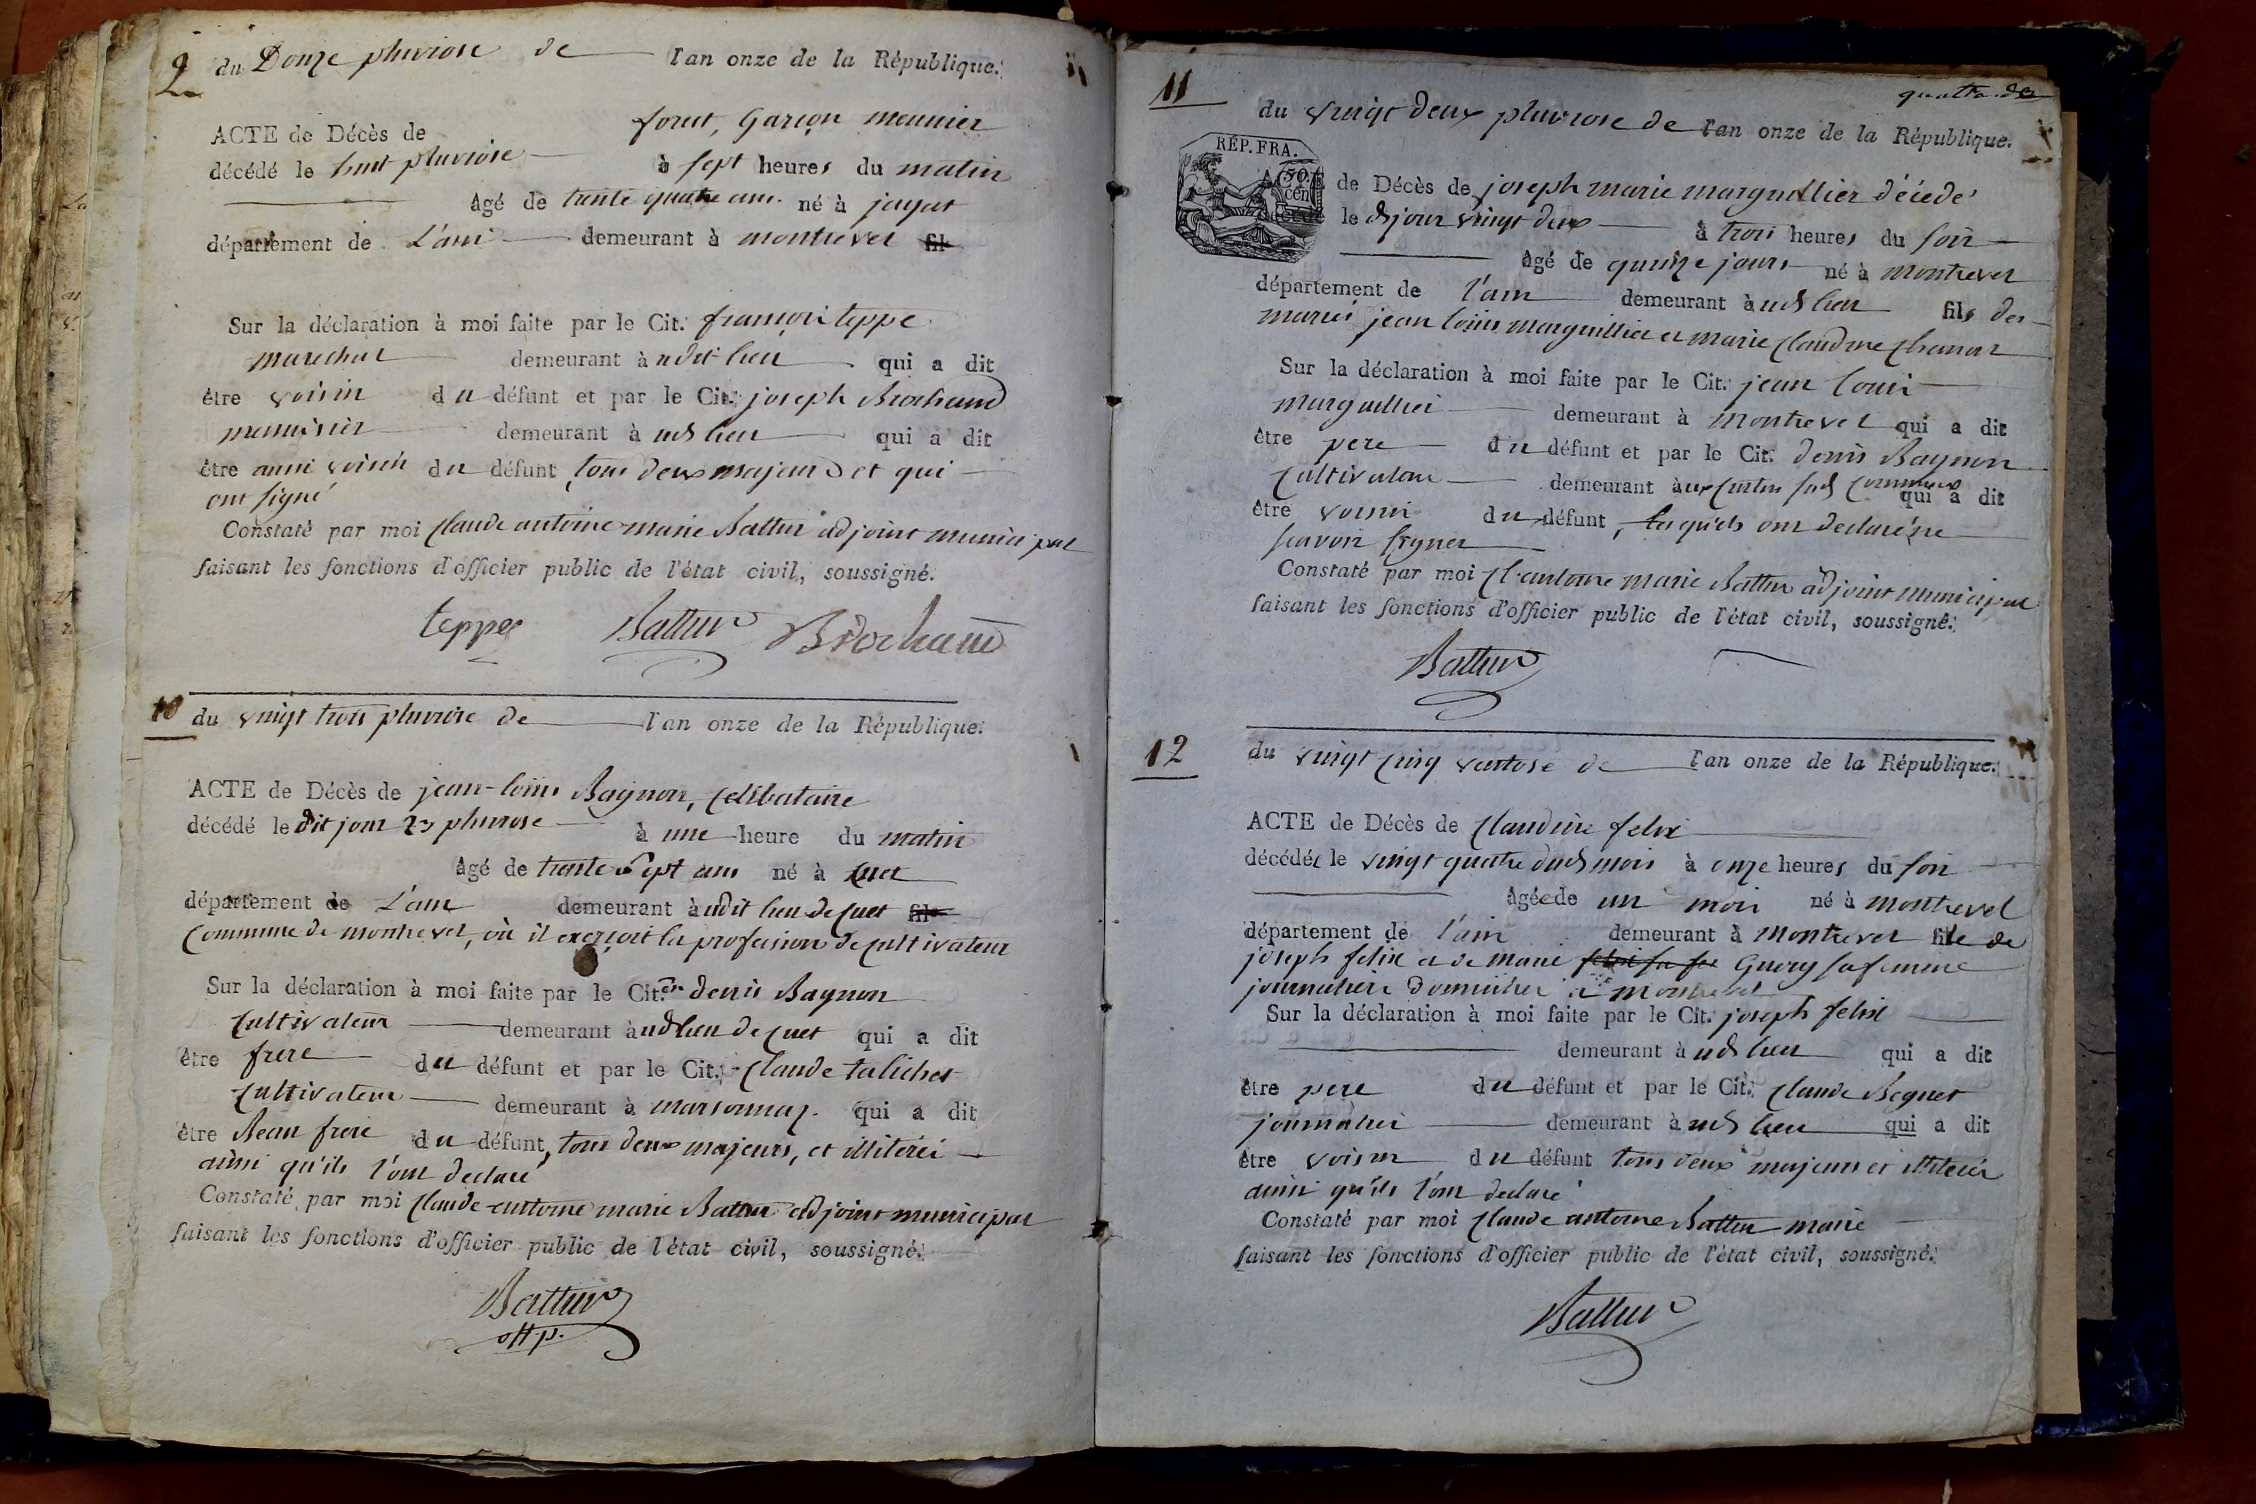 9
du Douze pluviose de l'an onze de la République.
ACTE de Décès de foret, Garçon meunier
décédé le huit pluviose à sept heures du matin
âgé de trente quatre ans. né à jayat
département de L'ain demeurant à montrevel fils
Sur la déclaration à moi faite par le Cit. francois teppe
marechal demeurant à udit lieu qui a dit
être voisin du défunt et par le Cit. joseph Brochand
menuisier demeurant à uds lieu qui a dit
être aussi voisin du défunt, tous deux majeurs et qui
ont signé
Constaté par moi Claude antoine marie Battur adjoint municipal
faisant les fonctions d'officier public de l'état civil, soussigné.
teppe Battur Brochand
10
du vingt trois pluviose de l'an onze de la République.
ACTE de Décès de jean-louis Bagnon, Celibataire
décédé le dit jour 23 pluviose à une heure du matin
âgé de trente sept ans né à Cuet
département de L'ain demeurant à udit lieu de Cuet fils
Commune de montrevel, où il exerçoit la profession de Cultivateur
Sur la déclaration à moi faite par le Cit.en denis Bagnon
Cultivateur demeurant à uds lieu de Cuet qui a dit
être frere du défunt et par le Cit. Claude talichet
Cultivateur demeurant à marsonnaz. qui a dit
être Beau frere du défunt, tous deux majeurs, et illiterés
ainsi qu'ils l'ont declaré
Constaté par moi Claude antoine marie Battur adjoint municipal
faisant les fonctions d'officier public de l'état civil, soussigné.
Battur
off p.
11
du vingt deux pluviose de l'an onze de la République.
RÉP. FRA.
50.
cen
ACTE de Décès de joseph marie marguillier décédé
le ds jour vingt deux à trois heures du soir
âgé de quinze jours né à montrevel
département de l'ain demeurant à uds lieu fils des
mariés jean louis marguillier et marie Claudine Chanon
Sur la déclaration à moi faite par le Cit. jean louis
marguillier demeurant à montrevel qui a dit
être pere du défunt et par le Cit. denis Bagnon
Cultivateur demeurant à ux Curtes suds Commune qui a dit
être voisin du défunt, lesquels ont declaré ne
scavoir signer
Constaté par moi Cl. antoine marie Battur adjoint municipal
faisant les fonctions d'officier public de l'état civil, soussigné.
Battur
12
du vingt Cinq ventose de l'an onze de la République.
ACTE de Décès de Claudine felix
décédée le vingt quatre duds mois à onze heures du soir
âgée de un mois né à montrevel
département de l'ain demeurant à montrevel fille de
joseph felix et de marie Guery sa femme
journaliers Domiciliés à montrevel
Sur la déclaration à moi faite par le Cit. joseph felix
demeurant à uds lieu qui a dit
être pere du défunt et par le Cit. Claude Begnet
journalier demeurant à uds lieu qui a dit
être voisin du défunt tous deux majeurs et illiterés
ainsi qu'ils l'ont declaré
Constaté par moi Claude antoine Battur marie
faisant les fonctions d'officier public de l'état civil, soussigné.
Battur